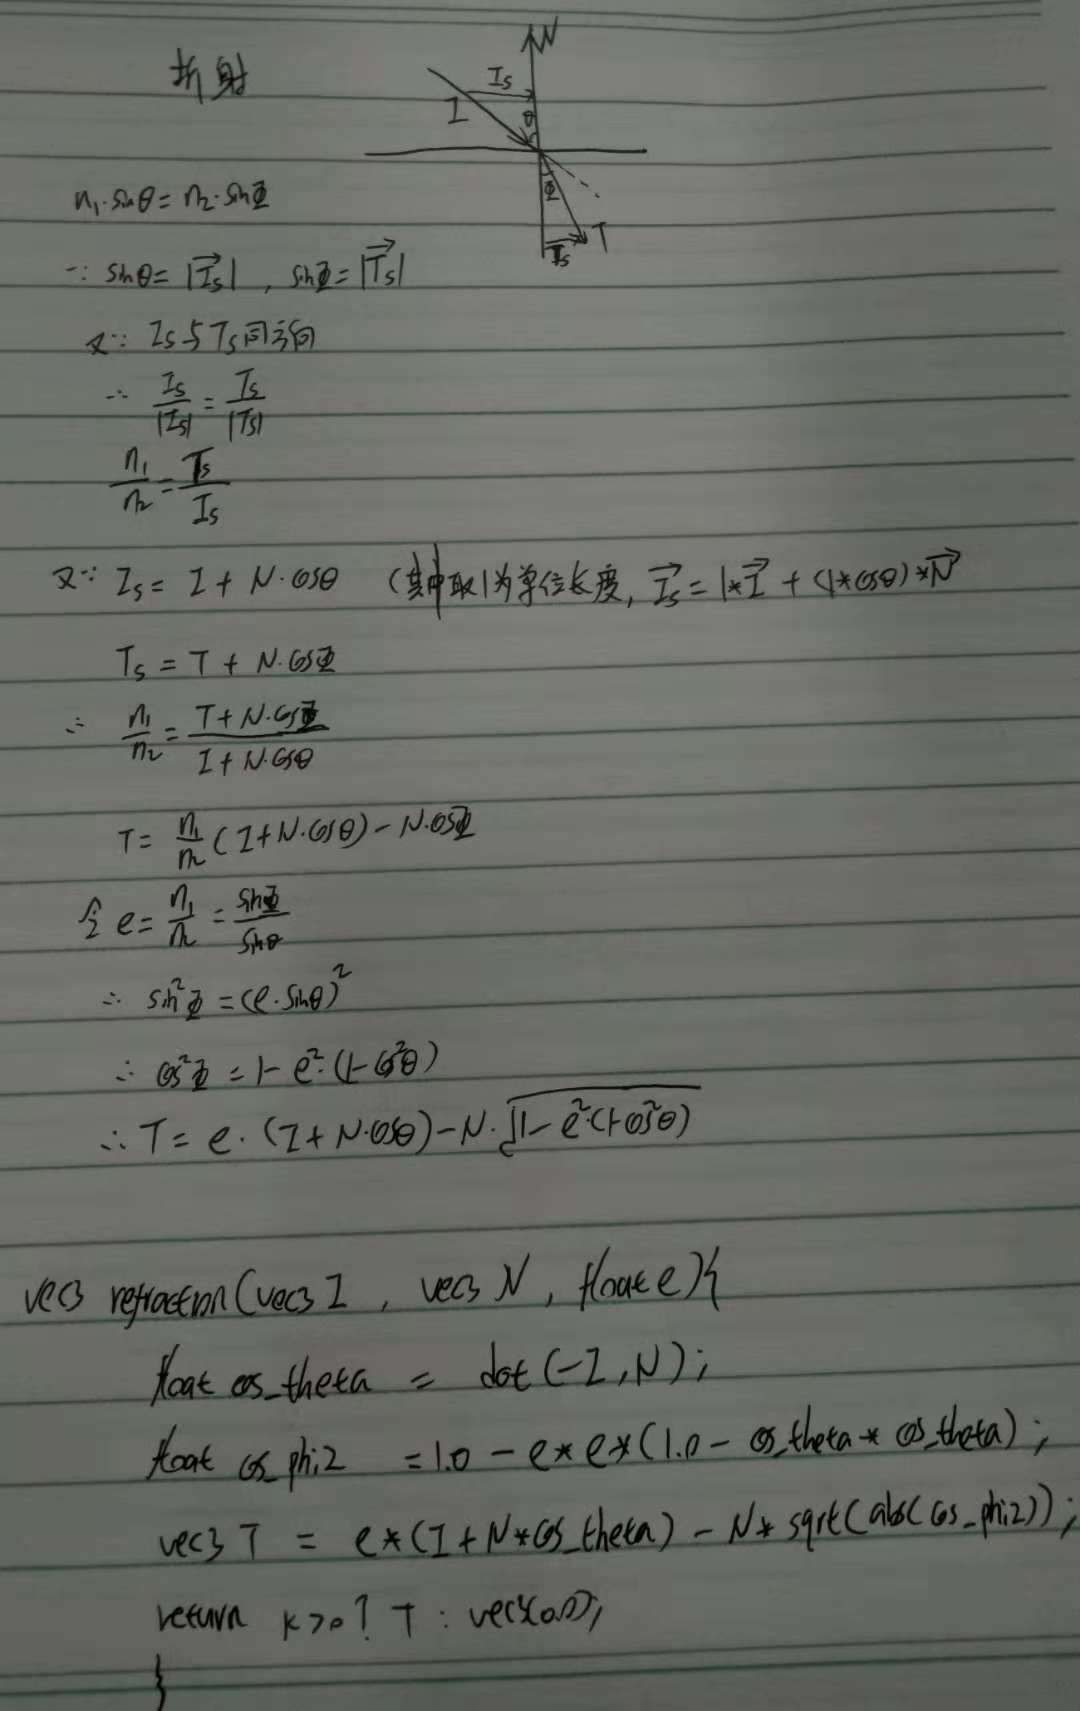 折射
N
Is
I
θ
Φ
T
Ts
n₁·sinθ = n₂·sinΦ
∵ sinθ = |Is|, sinΦ = |Ts|
又∵ Is与Ts同方向
∴ Is/|Is| = Ts/|Ts|
n₁/n₂ = Ts/Is
又∵ Is = I + N·cosθ (其中取1为单位长度, Is = 1*I + (1*cosθ)*N
Ts = T + N·cosΦ
∴ n₁/n₂ = (T + N·cosΦ)/(I + N·cosθ)
T = n₁/n₂ (I + N·cosθ) - N·cosΦ
令 e = n₁/n₂ = sinΦ/sinθ
∴ sin²Φ = (e·sinθ)²
∴ cos²Φ = 1 - e²·(1 - cos²θ)
∴ T = e·(I + N·cosθ) - N·√(1 - e²·(1-cos²θ))
vec3 refraction(vec3 I, vec3 N, float e){
float cos_theta = dot(-I, N);
float cos_phi2 = 1.0 - e*e*(1.0 - cos_theta * cos_theta);
vec3 T = e*(I + N*cos_theta) - N* sqrt(abs(cos_phi2));
return k>0? T : vec3(0.0);
}